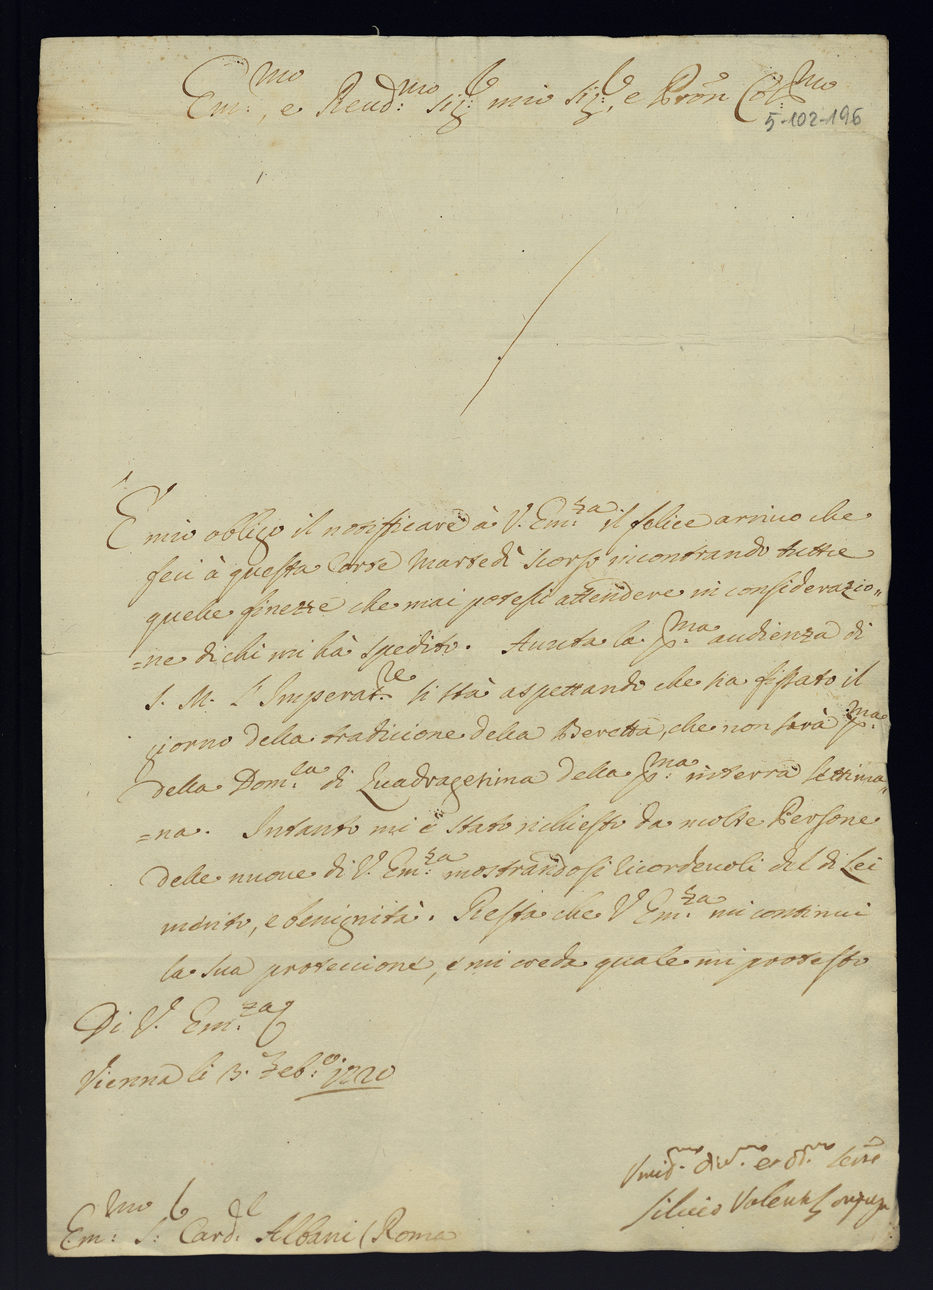 Em:mo, e Reud:mo Sig:e mio Sig:e, e Pron Col:mo
5-102-196
È mio obligo il notifficare à V. Em:za il felice arriuo che
feci à questa Corte Martedi scorso incontrando tutte
quelle finezze che mai potessi attendere in considerazio„
=ne di chi mi hà spedito. Auuta la p:ma audienza di
S. M. L'Imperat:re si stà aspettando che sia fissato il
giorno della tradicione della Beretta, che non sarà p:ma
della Dom:ca di Quadragesima della p:ma intera settima„
=na. Intanto mi è stato richiesto da molte Persone
delle nuoue di V. Em:za mostrandosi ricordeuoli del di Lei
merito, e benignità. Resta che V. Em:za mi continui
la sua protecione, e mi creda quale mi protesto
Di V. Em:za
Vienna li 3. Feb:o 1720
Vmid:mo diu:mo et obl:mo seruo
Siluio Valenti Gonzaga
Em:mo S: Card:l Albani (Roma